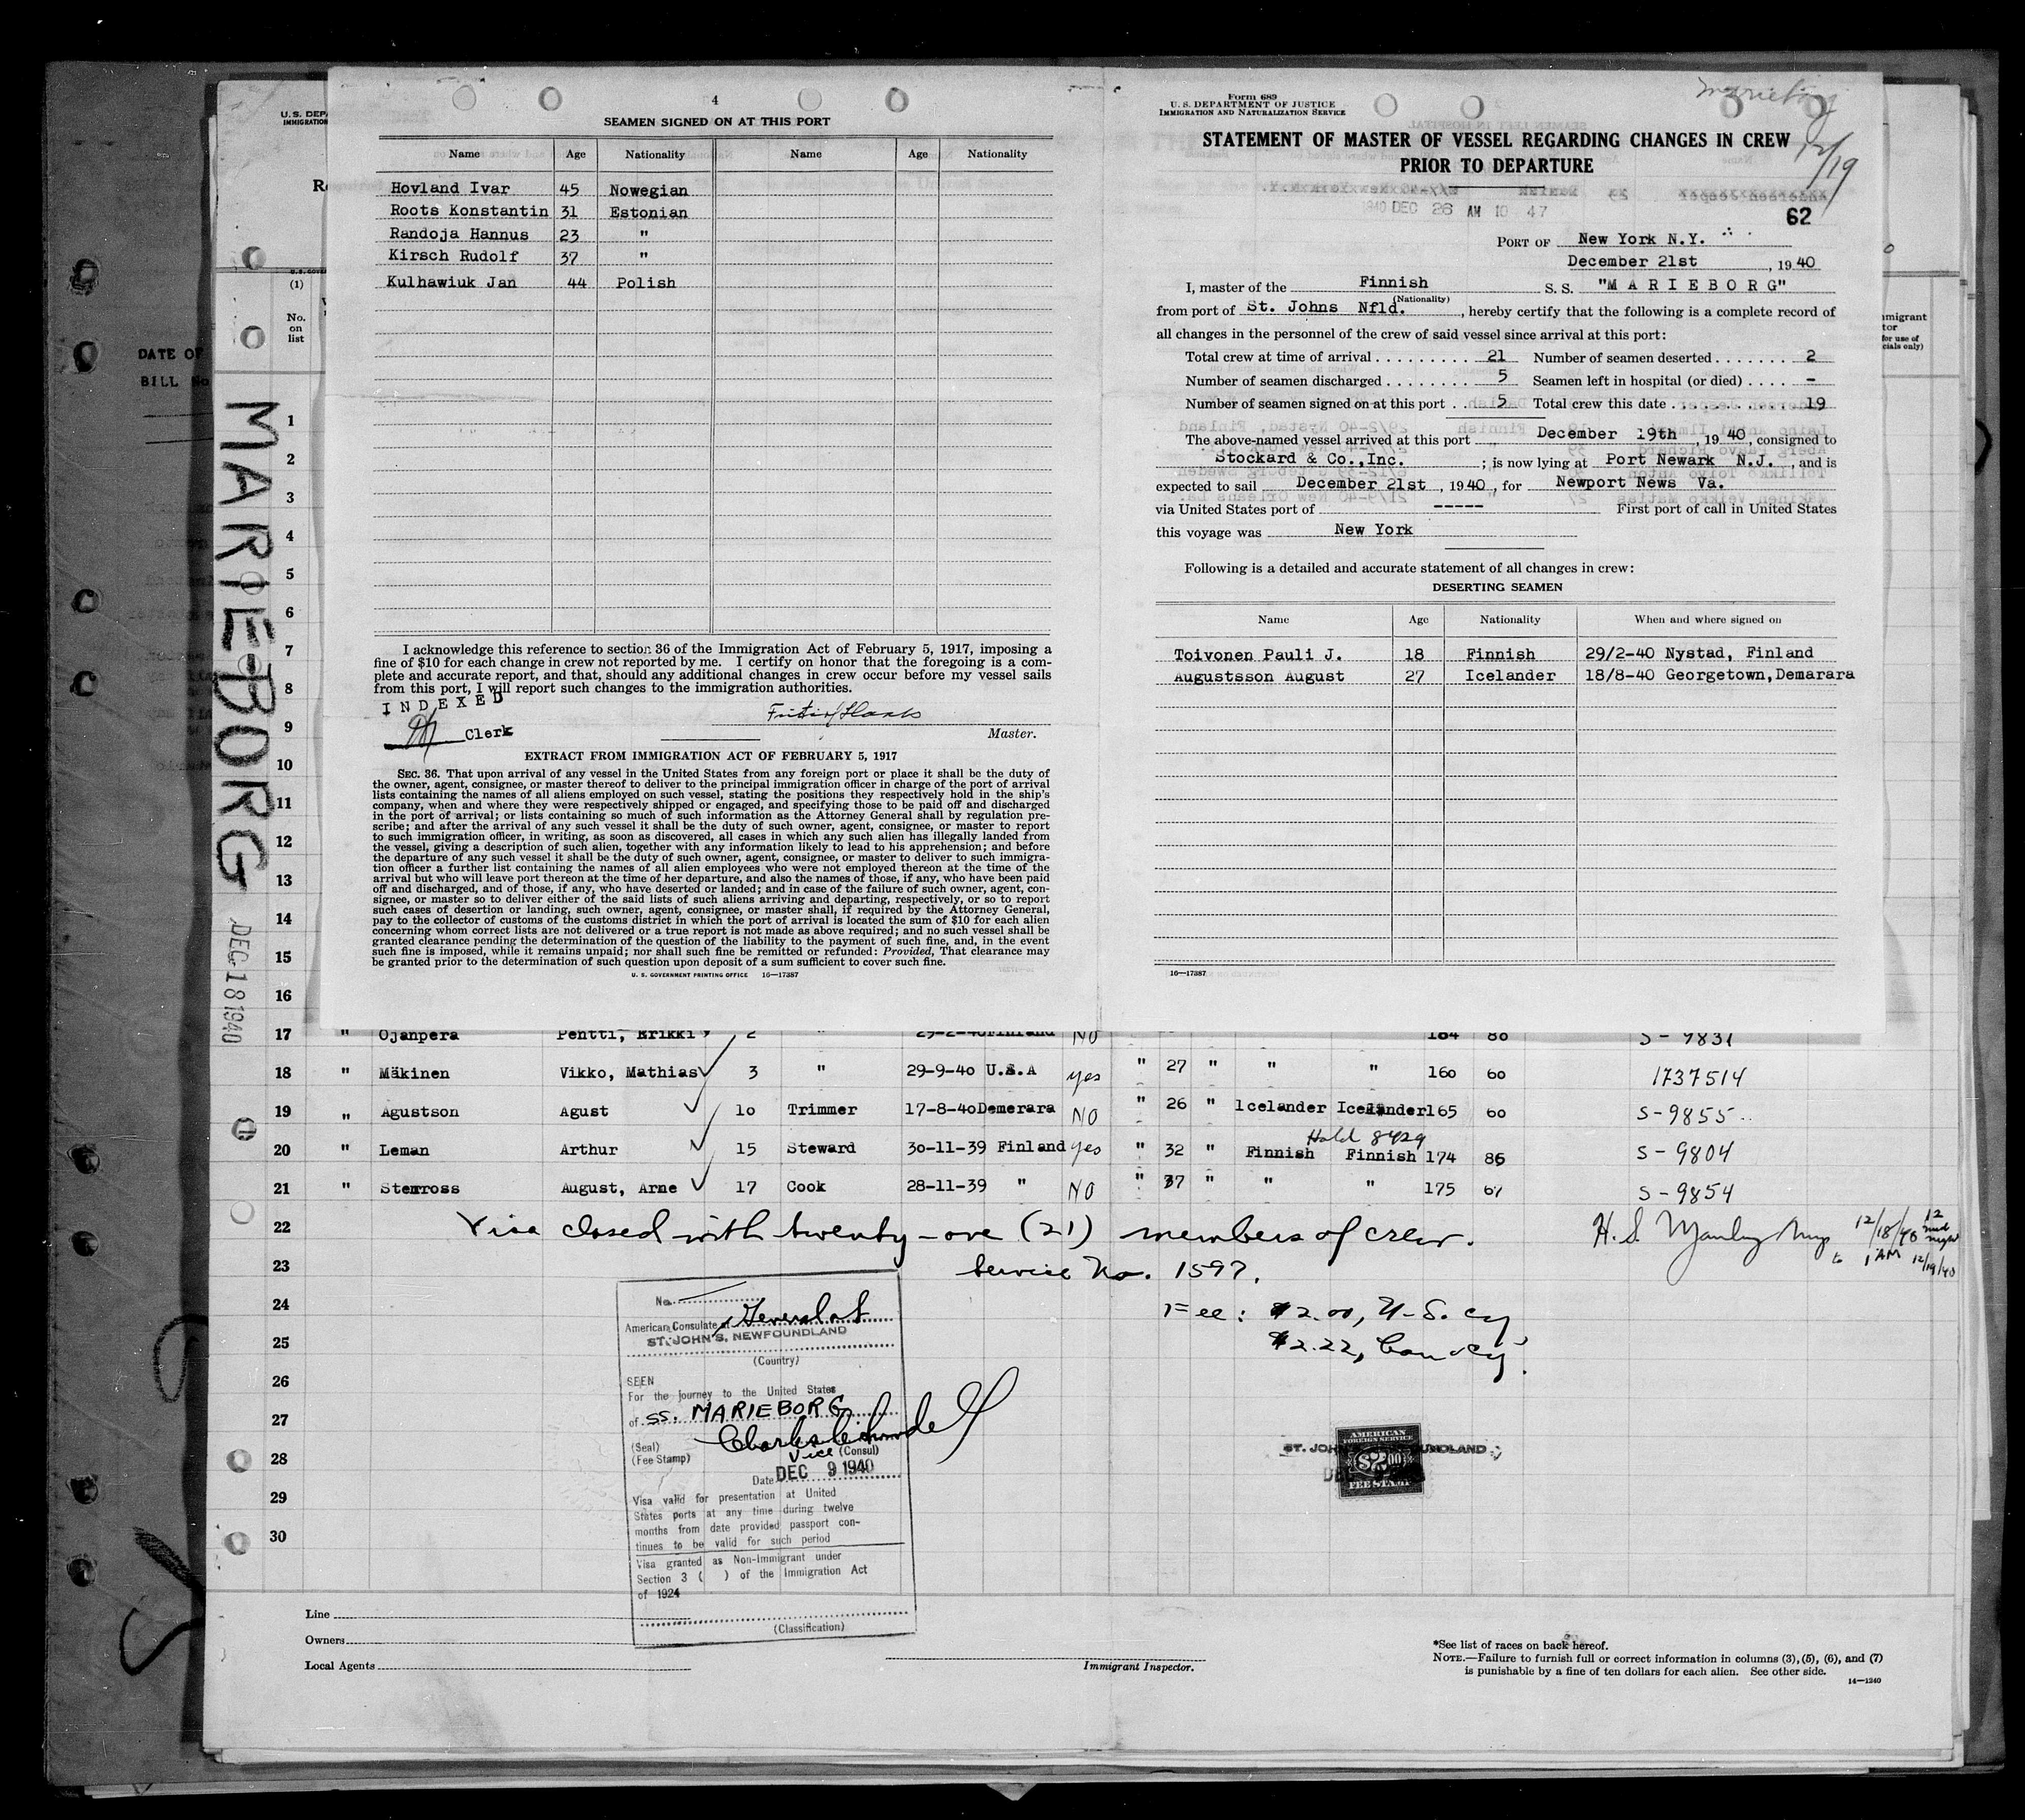 4
SEAMEN SIGNED ON AT THIS PORT
Name Age Nationality Name Age Nationality
Hovland Ivar 45 Nowegian
Roots Konstantin 31 Estonian
Randoja Hannus 23 "
Kirsch Rudolf 37 "
Kulhawiuk Jan 44 Polish
I acknowledge this reference to section 36 of the Immigration Act of February 5, 1917, imposing a
fine of $10 for each change in crew not reported by me. I certify on honor that the foregoing is a com-
plete and accurate report, and that, should any additional changes in crew occur before my vessel sails
from this port, I will report such changes to the immigration authorities.
INDEXED
Clerk
Master.
EXTRACT FROM IMMIGRATION ACT OF FEBRUARY 5, 1917
SEC. 36. That upon arrival of any vessel in the United States from any foreign port or place it shall be the duty of
the owner, agent, consignee, or master thereof to deliver to the principal immigration officer in charge of the port of arrival
lists containing the names of all aliens employed on such vessel, stating the positions they respectively hold in the ship's
company, when and where they were respectively shipped or engaged, and specifying those to be paid off and discharged
in the port of arrival; or lists containing so much of such information as the Attorney General shall by regulation pre-
scribe; and after the arrival of any such vessel it shall be the duty of such owner, agent, consignee, or master to report
to such immigration officer, in writing, as soon as discovered, all cases in which any such alien has illegally landed from
the vessel, giving a description of such alien, together with any information likely to lead to his apprehension; and before
the departure of any such vessel it shall be the duty of such owner, agent, consignee, or master to deliver to such immigra-
tion officer a further list containing the names of all alien employees who were not employed thereon at the time of the
arrival but who will leave port thereon at the time of her departure, and also the names of those, if any, who have been paid
off and discharged, and of those, if any, who have deserted or landed; and in case of the failure of such owner, agent, con-
signee, or master so to deliver either of the said lists of such aliens arriving and departing, respectively, or so to report
such cases of desertion or landing, such owner, agent, consignee, or master shall, if required by the Attorney General,
pay to the collector of customs of the customs district in which the port of arrival is located the sum of $10 for each alien
concerning whom correct lists are not delivered or a true report is not made as above required; and no such vessel shall be
granted clearance pending the determination of the question of the liability to the payment of such fine, and, in the event
such fine is imposed, while it remains unpaid; nor shall such fine be remitted or refunded: Provided, That clearance may
be granted prior to the determination of such question upon deposit of a sum sufficient to cover such fine.
U. S. GOVERNMENT PRINTING OFFICE 16—17387
Marieborg
12/19
Form 689
U. S. DEPARTMENT OF JUSTICE
IMMIGRATION AND NATURALIZATION SERVICE
STATEMENT OF MASTER OF VESSEL REGARDING CHANGES IN CREW
PRIOR TO DEPARTURE
1940 DEC 26 AM 10 47
62
PORT OF New York N.Y.
December 21st, 1940
I, master of the Finnish S. S. "MARIEBORG"
(Nationality)
from port of St. Johns Nfld., hereby certify that the following is a complete record of
all changes in the personnel of the crew of said vessel since arrival at this port:
Total crew at time of arrival 21 Number of seamen deserted 2
Number of seamen discharged 5 Seamen left in hospital (or died) -
Number of seamen signed on at this port 5 Total crew this date 19
The above-named vessel arrived at this port December 19th, 1940, consigned to
Stockard & Co., Inc.; is now lying at Port Newark N.J., and is
expected to sail December 21st, 1940, for Newport News Va.
via United States port of ----- First port of call in United States
this voyage was New York
Following is a detailed and accurate statement of all changes in crew:
DESERTING SEAMEN
Name Age Nationality When and where signed on
Toivonen Pauli J. 18 Finnish 29/2-40 Nystad, Finland
Augustsson August 27 Icelander 18/8-40 Georgetown, Demarara
16—17387
U. S. DEP
IMMIGRATION
(1)
No.
on
list
DATE OF
BILL No
MARIEBORG
DEC 18 1940
1
2
3
4
5
6
7
8
9
10
11
12
13
14
15
16
17 " Ojanpera Pentti, Erikki 2 " 29-2-40 Finland NO 184 80 S-9831
18 " Mäkinen Vikko, Mathias 3 " 29-9-40 U.S.A yes " 27 " " " 160 60 1737514
19 " Agustson Agust 10 Trimmer 17-8-40 Demerara NO " 26 " Icelander Icelander 165 60 S-9855
Hold 8429
20 " Leman Arthur 15 Steward 30-11-39 Finland yes " 32 " Finnish Finnish 174 86 S-9804
21 " Stenross August, Arne 17 Cook 28-11-39 " NO " 37 " " " 175 67 S-9854
22 Visa closed with twenty-one (21) members of crew.
12/18/40 12 mid night to 1 AM 12/19/40
23 Service No. 1597.
24 Fee: $2.00, U.S. cy
25 $2.22, Can cy.
26
27
28
29
30
No.
American Consulate General at
ST. JOHN'S, NEWFOUNDLAND
(Country)
SEEN
For the journey to the United States
of SS. MARIEBORG
(Seal)
(Fee Stamp)
Vice (Consul)
Date DEC 9 1940
Visa valid for presentation at United
States ports at any time during twelve
months from date provided passport con-
tinues to be valid for such period
Visa granted as Non-Immigrant under
Section 3 ( ) of the Immigration Act
of 1924
(Classification)
AMERICAN
FOREIGN SERVICE
$2.00
FEE STAMP
Line
Owners
Local Agents
Immigrant Inspector.
*See list of races on back hereof.
NOTE.—Failure to furnish full or correct information in columns (3), (5), (6), and (7)
is punishable by a fine of ten dollars for each alien. See other side.
14—1240